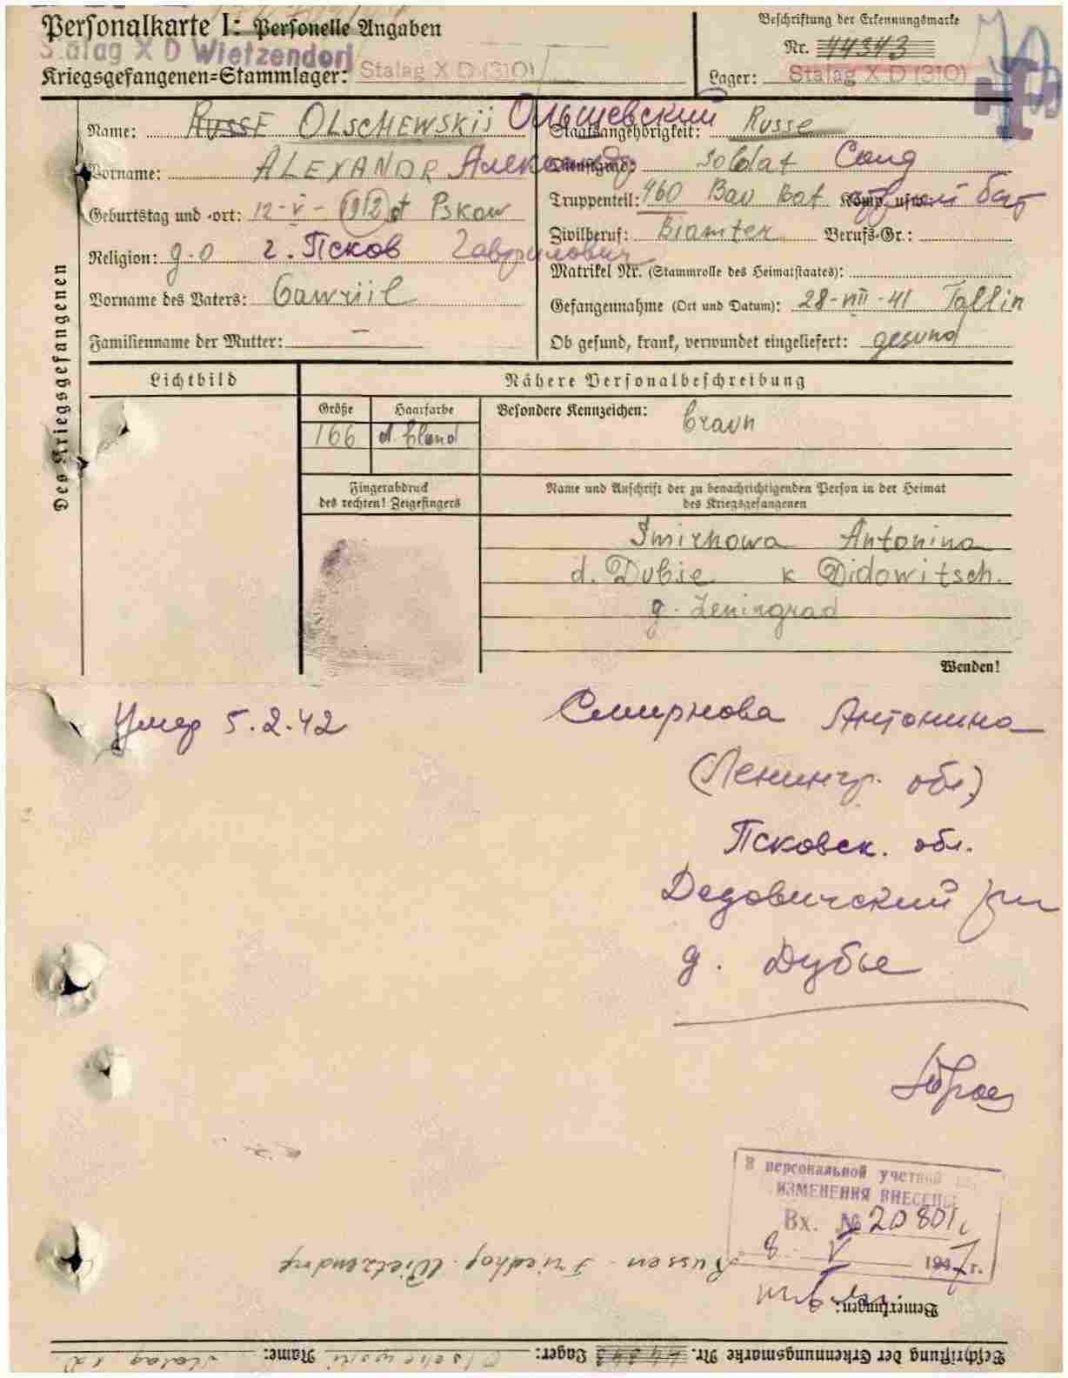 Personalkarte I: Personelle Angaben
Stalag X D Wietzendorf
Kriegsgefangenen=Stammlager: Stalag X D (310)
Beschriftung der Erkennungsmarke
Nr. 44343
Lager: Stalag X D (310)
Des Kriegsgefangenen
Name: Russe OLSCHEWSKij Ольшевский
Vorname: ALEXANDR Александр
Geburtstag und -ort: 12-V-1912 Pskow
Religion: g.o г. Псков Гаврилович
Vorname des Vaters: Gawriil
Familienname der Mutter: —
Staatsangehörigkeit: Russe
Dienstgrad: Soldat Солд
Truppenteil: 460 Bau Bat Komp. usw.: бат
Zivilberuf: Berufs-Gr.:
Matrikel Nr. (Stammrolle des Heimatstaates):
Gefangennahme (Ort und Datum): 28-VIII-41 Tallin
Ob gesund, krank, verwundet eingeliefert: gesund
Lichtbild
Nähere Personalbeschreibung
Größe Haarfarbe Besondere Kennzeichen: braun
166 d. blond
Fingerabdruck
des rechten! Zeigefingers
Name und Anschrift der zu benachrichtigenden Person in der Heimat
des Kriegsgefangenen
Smirnowa Antonina
d. Dubie k Didowitsch.
g. Leningrad
Wenden!
Умер 5.2.42
Смирнова Антонина
(Ленингр. обл)
Псковск. обл.
Дедовичский
д. Дубье
В персональной учетной
ИЗМЕНЕНИЯ ВНЕСЕНЫ
Вх. № 20801
8 V 1947 г.
Russen-Friedhof Wietzendorf
Bemerkungen:
Beschriftung der Erkennungsmarke Nr. 44343 Lager: Name: Olschewski Stalag X D